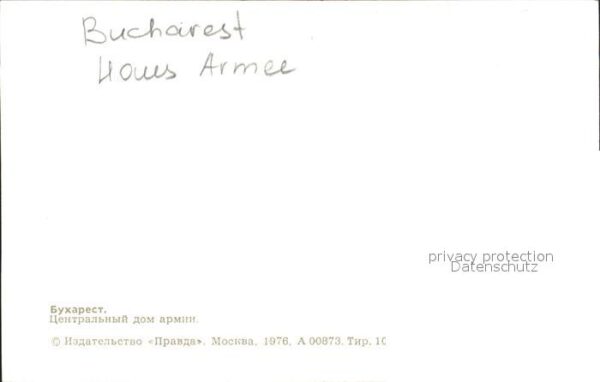 Bucharest
Haus Armee
privacy protection
Datenschutz
Бухарест.
Центральный дом армии.
© Издательство «Правда». Москва, 1976, А 00873. Тир. 10